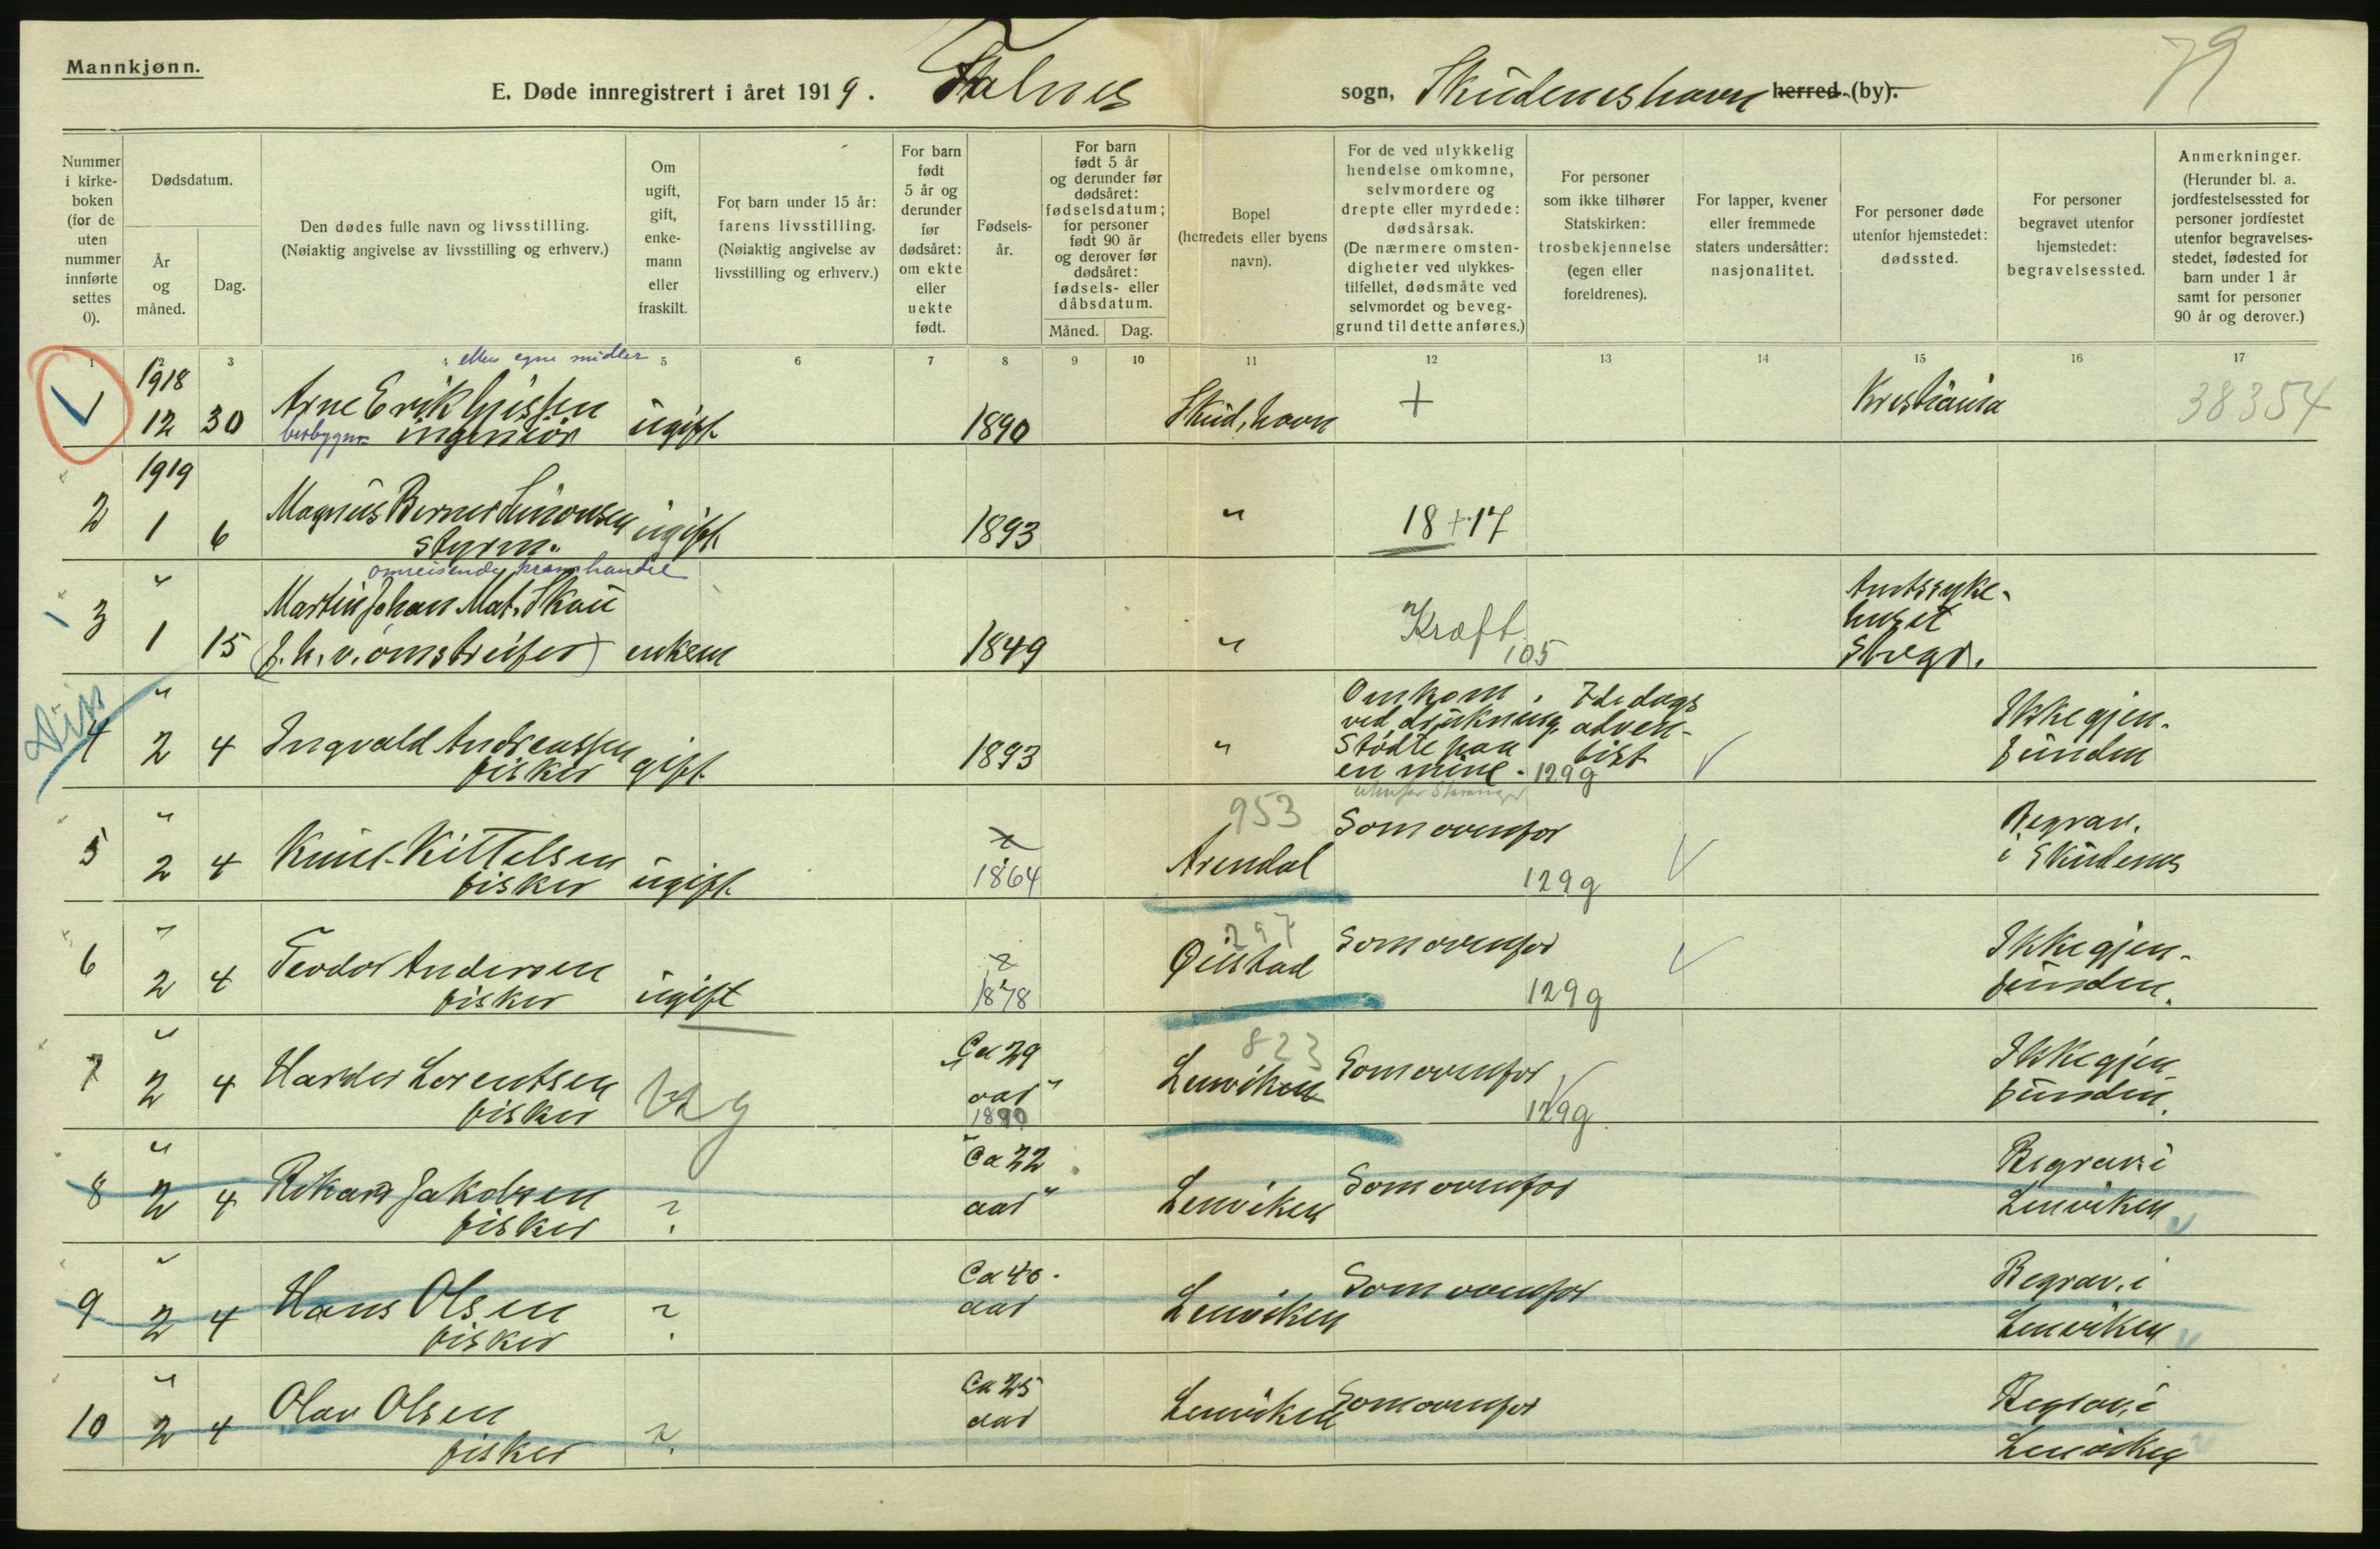 Mannkjønn.
79
E. Døde innregistrert i året 1919. Falnes sogn, Skudeneshavn herred (by).
Nummer i kirkeboken (for de uten nummer innførte settes 0).
Dødsdatum.
År og måned.
Dag.
Den dødes fulle navn og livsstilling.
(Nøiaktig angivelse av livsstilling og erhverv.)
Om ugift, gift, enkemann eller fraskilt.
For barn under 15 år: farens livsstilling. (Nøiaktig angivelse av livsstilling og erhverv.)
For barn født 5 år og derunder før dødsåret: om ekte eller uekte født.
Fødselsår.
For barn født 5 år og derunder før dødsåret: fødselsdatum; for personer født 90 år og derover før dødsåret: fødsels- eller dåbsdatum.
Måned. Dag.
Bopel (herredets eller byens navn).
For de ved ulykkelig hendelse omkomne, selvmordere og drepte eller myrdede: dødsårsak. (De nærmere omstendigheter ved ulykkestilfellet, dødsmåte ved selvmordet og beveggrund til dette anføres.)
For personer som ikke tilhører Statskirken: trosbekjennelse (egen eller foreldrenes).
For lapper, kvener eller fremmede staters undersåtter: nasjonalitet.
For personer døde utenfor hjemstedet: dødssted.
For personer begravet utenfor hjemstedet: begravelsessted.
Anmerkninger. (Herunder bl. a. jordfestelsessted for personer jordfestet utenfor begravelsesstedet, fødested for barn under 1 år samt for personer 90 år og derover.)
1 2 3 4 5 6 7 8 9 10 11 12 13 14 15 16 17
eller egne midler
1918
12 30 Arne Erik ingeniør ugift 1890 Skud.havn + Kristiania 38354
1919
2 1 6 Magnus Berner Simonsen styrm. ugift 1893 " 18 + 17
omreisende kramhandel
3 " 1 15 Martin Johan Mat. Skau
(f. h. v. omstreifer) enkem 1849 " Kræft 105 Amtssykehuset Stvgr.
Diss
4 " 2 4 Ingvald Andreassen fisker gift 1893 " Omkom ved drukning, stødte paa en mine. 7de dags advenbist 129g Ikke gjenfunden
utenfor Stavanger
5 " 2 4 Knut Kittelsen fisker ugift ? 1864 953 Arendal Som ovenfor 129g Begrav. i Skudenes
6 " 2 4 Teodor Andersen fisker ugift ? 1878 297 Øiestad Som ovenfor 129g Ikke gjenfunden.
7 " 2 4 Harder Lorentsen fisker ug "Ca 29 aar" 1890 823 Lenviken Som ovenfor 129g Ikke gjenfunden.
8 " 2 4 Rikard Jakobsen fisker ? "Ca 22 aar" Lenviken Som ovenfor Begrav. i Lenviken
9 " 2 4 Hans Olsen fisker ? Ca 40 aar Lenviken Som ovenfor Begrav. i Lenviken
10 " 2 4 Olav Olsen fisker ? Ca 25 aar Lenviken Som ovenfor Begrav. i Lenviken